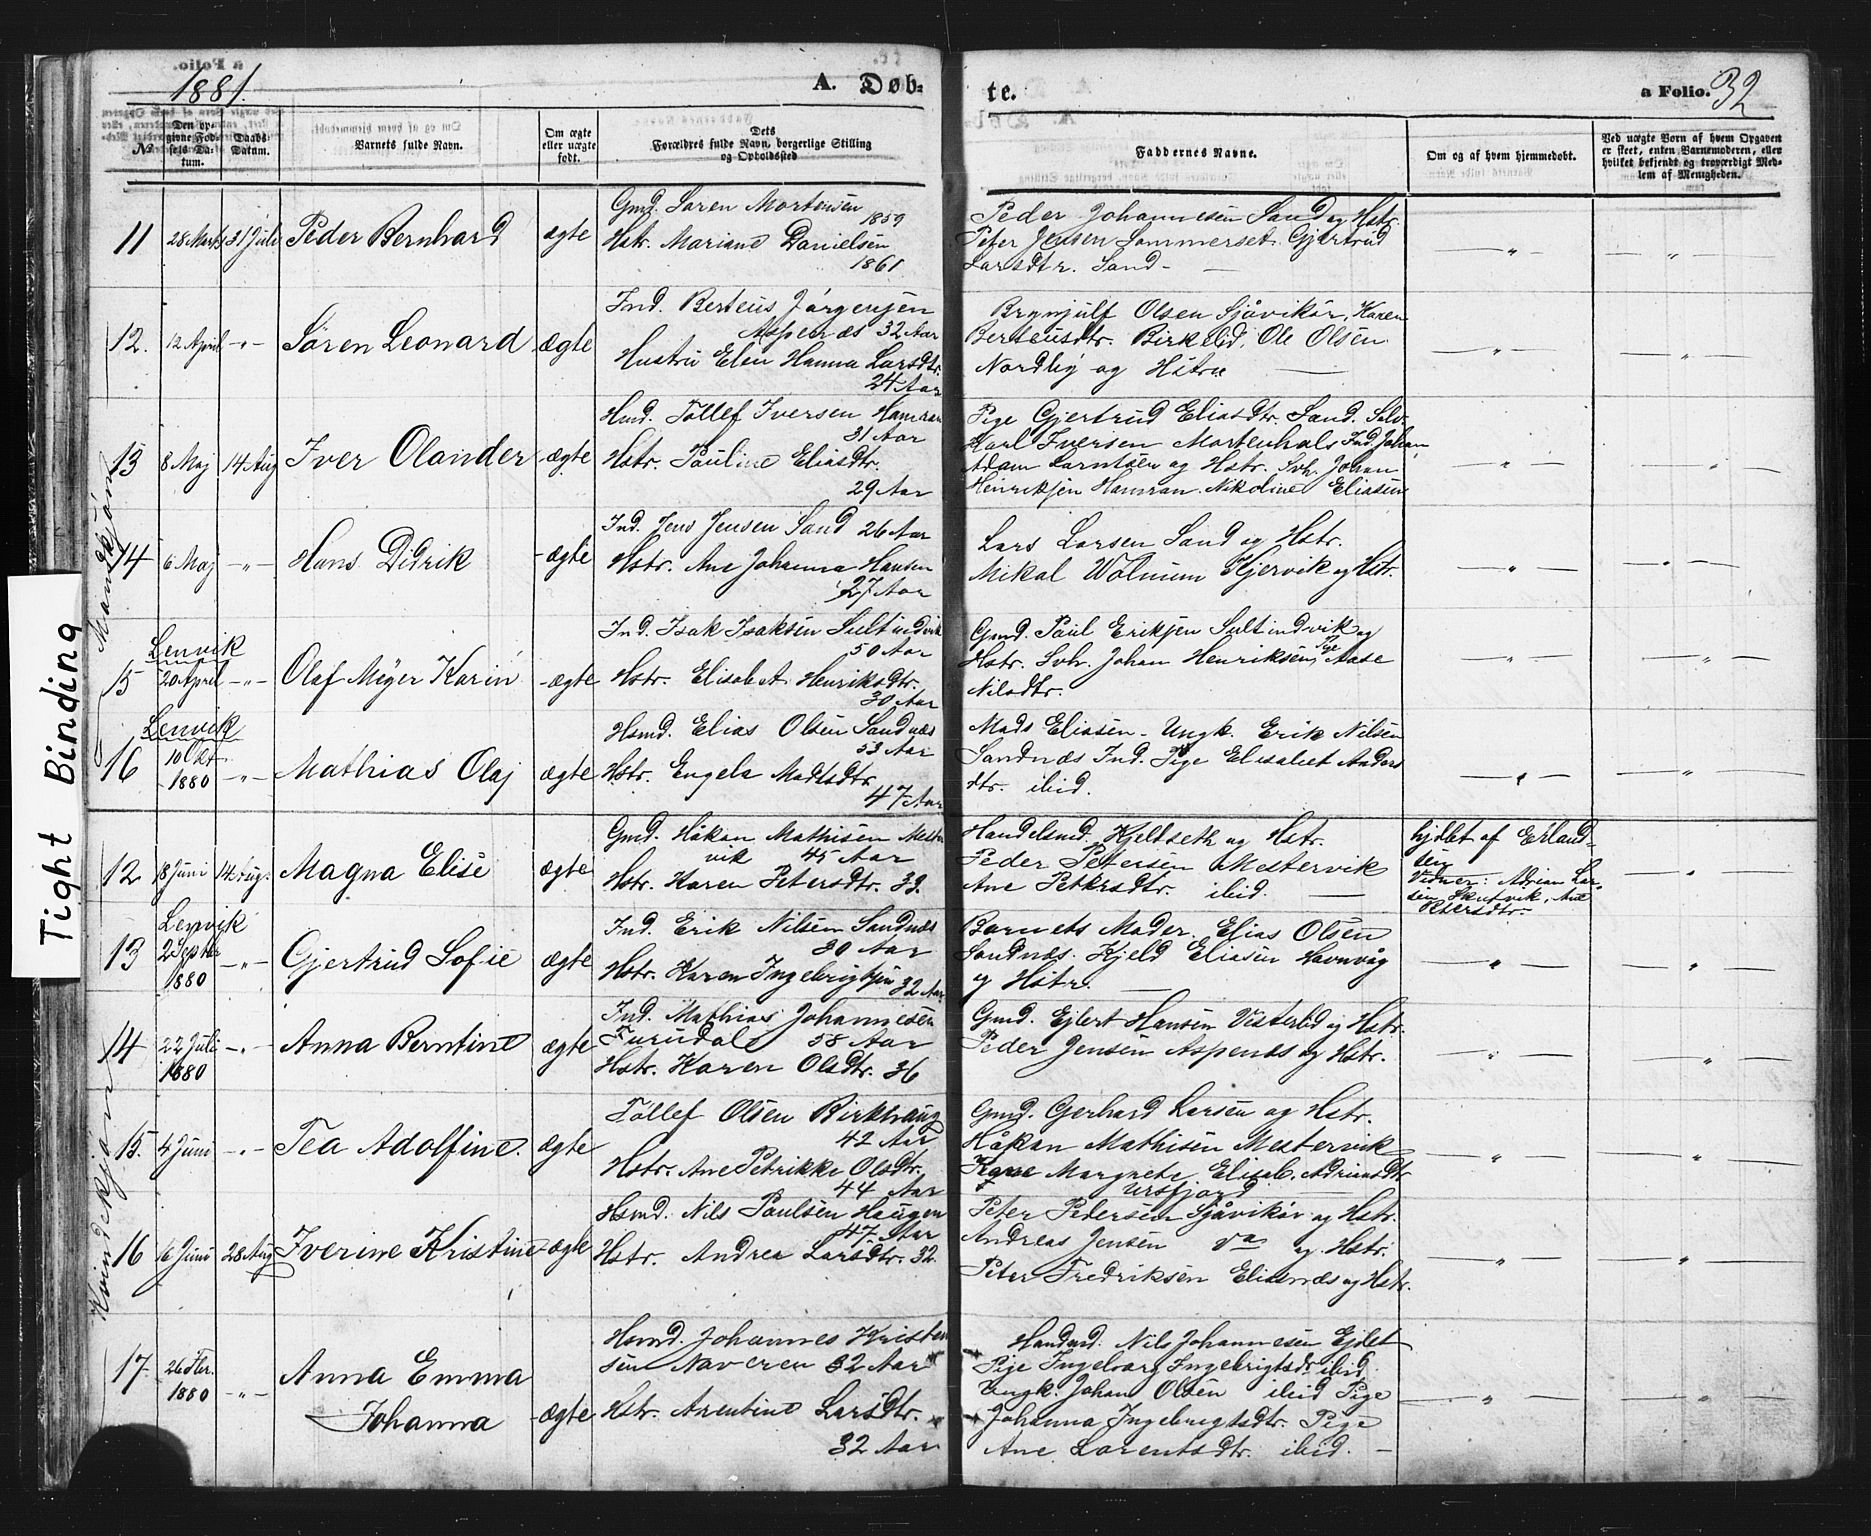 1881.
A. Døb-
te.
a Folio. 32
No
Den opgivne Fødsels Datum.
Daabs Datum.
Barnets fulde Navn.
Om ægte eller uægte født.
Dets Forældres fulde Navn, borgerlige Stilling og Opholdssted
Faddernes Navne.
Om og af hvem hjemmedøbt.
Ved uægte Børn af hvem Opgaven er skeet, enten Barnemoderen, eller hvilket bekjendt og troværdigt Medlem af Menigheden.
Tight Binding
Mandkjøn
11 28 Marts 31 Juli Peder Bernhard ægte
Gmd. Søren Mortensen
1859
Hstr. Mariane Danielsen
1861
Peder Johannesen Sand og Hstr.
Peter Jensen Sommerset. Gjertrud
Larsdtr. Sand -
12. 12 April -"- Søren Leonard ægte
Ind. Berteus Jörgensen
Aspenæs 32 Aar
Hustru Elen Hanna Larsdtr.
24 Aar
Brynjulf Olsen Sjåvikør, Karen
Berteusdtr. Birkelid, Ole Olsen
Nordlig og Hstru
13 8 Maj 14 Aug Iver Olander ægte
Hmd. Töllef Iversen Hamran
31 Aar
Hstr. Pauline Eliasdtr.
29 Aar
Pige Gjertrud Eliasdtr. Sand. Selv.
Karl Iversen Mortenhals Ind. Johan
Adam Larntsen og Hstr. Svh. Johan
Henriksen Hamran. Nikoline Eliasen
14 6 Maj -"- Hans Didrik ægte
Ind. Jens Jensen Sand 26 Aar
Hstr. Ane Johanna Hansen
27 Aar
Lars Larsen Sand og Hstr.
Mikal Wolnum Kjervik og Hstr.
Lenvik
15 20 April -"- Olaf Meyer Karin ægte
Ind. Isak Isaksen Sultindvik
50 Aar
Hstr. Elisabet Henriksdtr.
30 Aar
Gmd. Paul Eriksen Sultindvik og
Hstr. Svh. Johan Henriksen, Pige Aase
Nilsdtr.
Lenvik
16 10 Okt. 1880 -"- Mathias Olaj ægte
Hsmd. Elias Olsen Sandnæs
53 Aar
Hstr. Engele Madtsdtr.
47 Aar
Mads Eliasen - Ungk. Erik Nilsen
Sandnæs Ind. Pige Elisabet Anders
dtr. ibid.
Kvindekjøn
12 8 Juni 14 Aug. Magna Elise ægte
Gmd. Håkan Mathisen Mester
vik 45 Aar
Hstr. Karen Petersdtr. 39.
Handelsmd. Kjeldseth og Hstr.
Peder Petersen Mestervik
Ane Petersdtr. ibid.
hjdøbt af Erland-
sen
Vidner: Adrian Lar-
sen Skutvik, Ane
Petersdtr.
Lenvik
13 2 Septbr 1880 -"- Gjertrud Sofie ægte
Ind. Erik Nilsen Sandnæs
30 Aar
Hstr. Karen Ingebrigtsen 32 Aar
Barnets Moder. Elias Olsen
Sandnæs. Kjeld Eliasen Havnvåg
og Hstr.
14 22 Juli 1880 -"- Anna Berntine ægte
Ind. Mathias Johannesen
Furudal 58 Aar
Hstr. Karen Olsdtr. 36
Gmd. Ejlert Hansen Vesterlid og Hstr.
Peder Jensen Aspenæs og Hstr.
15. 4 Juni -"- Tea Adolfine. ægte
Töllef Olsen Birkhaug
42 Aar
Hstr. Ane Petrikke Olsdtr.
44 Aar
Gmd. Gerhard Larsen og Hstr.
Håkan Mathisen Mestervik
Margrete Elisab. Adriansdtr
Ursfjord
16 6 Juni 28 Aug Iverine Kristine ægte
Hsmd. Nils Paulsen Haugen
47 Aar
Hstr. Andrea Larsdtr. 32.
Peter Pedersen Sjåvikør og Hstr.
Andreas Jensen og Hstr.
Peter Fredriksen Elisenæs og Hstr.
17. 26 Fbr. 1880 -"- Anna Emma
Johanna ægte
Hsmd. Johannes Kristen
sen Naveren 32 Aar
Hstr. Arentine Larsdtr.
32 Aar
Nils Johannesen Ejdet
Pige Ingeborg Ingebrigtsdtr ibid.
Ungk. Johan Olsen ibid Pige
Johanna Ingebrigtsdtr. Pige
Ane Larentsdtr. ibid. -